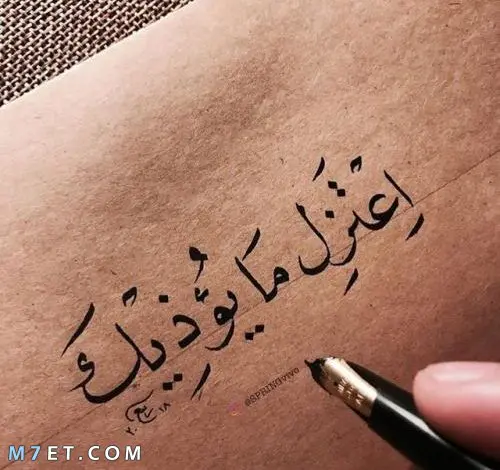 اِعْتَزِل مَا يُؤْذِيْك
@SPRINGvivo
M7ET.COM